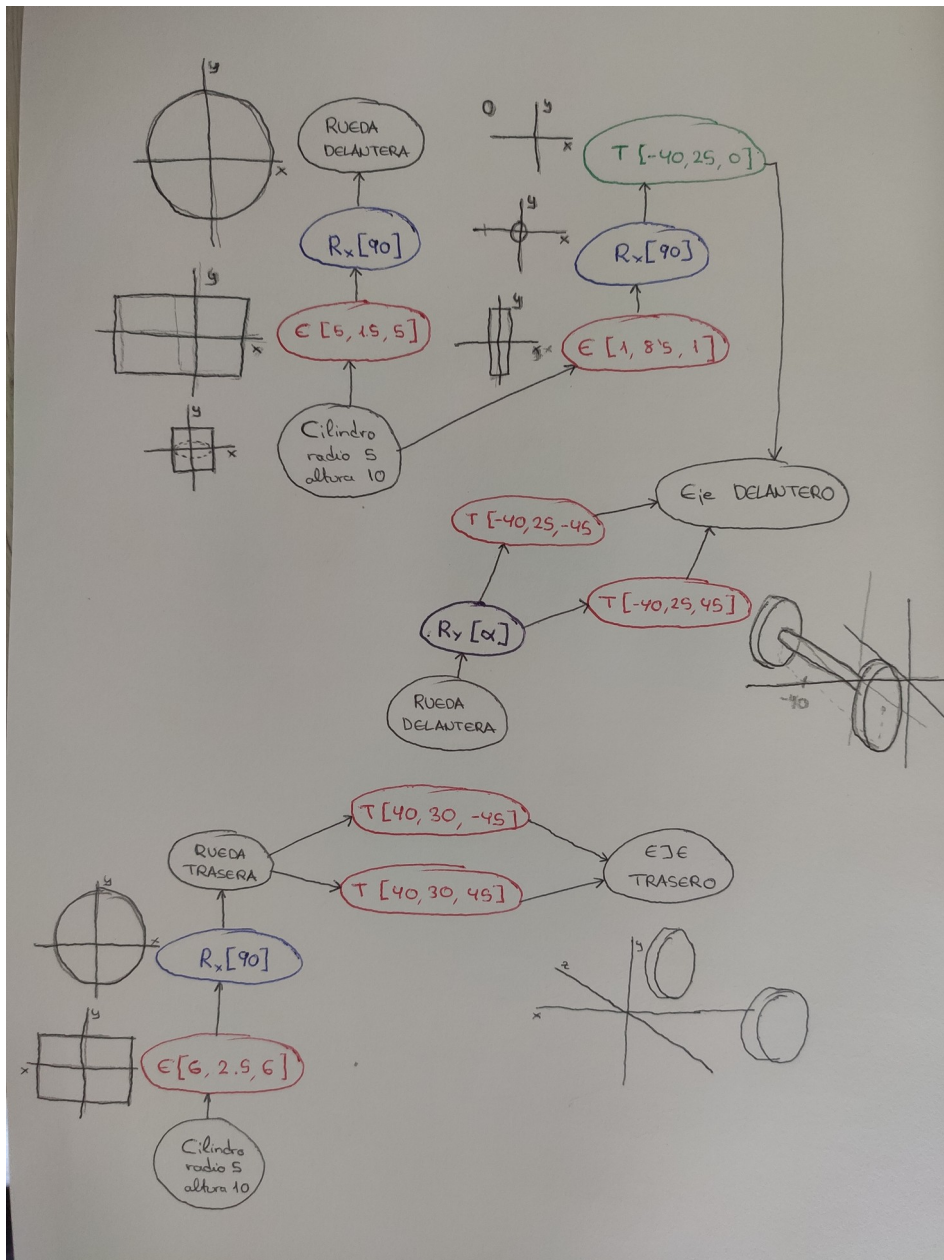 y
x
RUEDA
DELANTERA
Rx[90]
y
x
E [5, 1.5, 5]
y
x
Cilindro
radio 5
altura 10
O
y
x
T [-40, 25, 0]
y
x
Rx[90]
y
x
E [1, 8'5, 1]
Eje DELANTERO
T [-40, 25, -45
T [-40, 25, 45]
Ry [α]
RUEDA
DELANTERA
-40
T [40, 30, -45]
RUEDA
TRASERA
T [40, 30, 45]
EJE
TRASERO
y
x
Rx[90]
y
x
E[6, 2.5, 6]
Cilindro
radio 5
altura 10
y
z
x